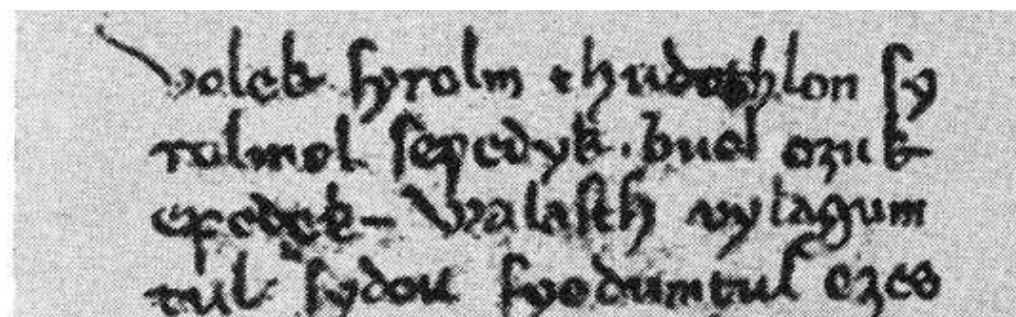 volek ſyrolm thudothlon ſy
rolmol ſepedyk. buol ozuk
epedek– Walaſth vylagum
tul ſydou fyodumtul ezes